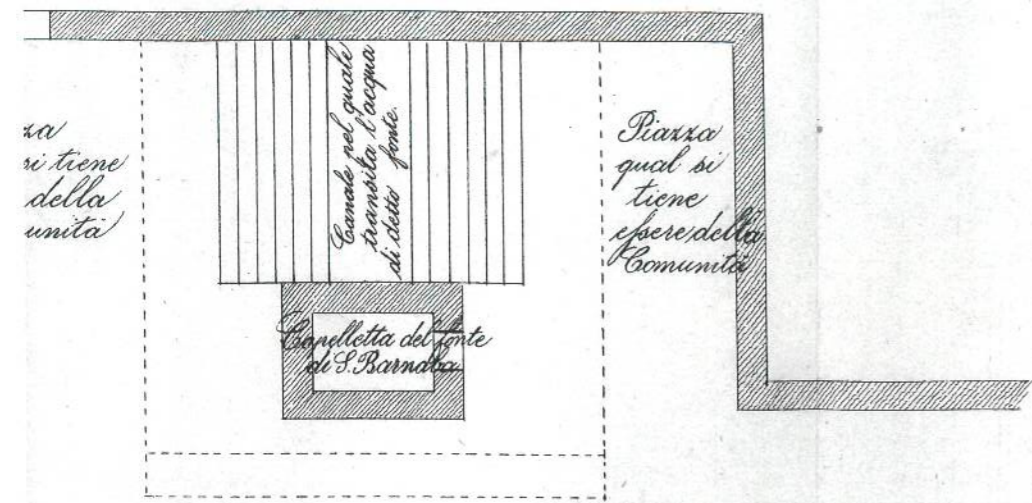 za
si tiene
della
unità
Canale pel quale
transita l'acqua
di detto fonte.
Piazza
qual si
tiene
essere della
Comunità
Capelletta del fonte
di S. Barnaba